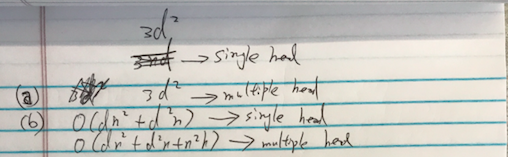 3d²
→ single head
(a) 3d² → multiple head
(b) O(dn² + d²n) → single head
O(dn² + d²n + n²h) → multiple head